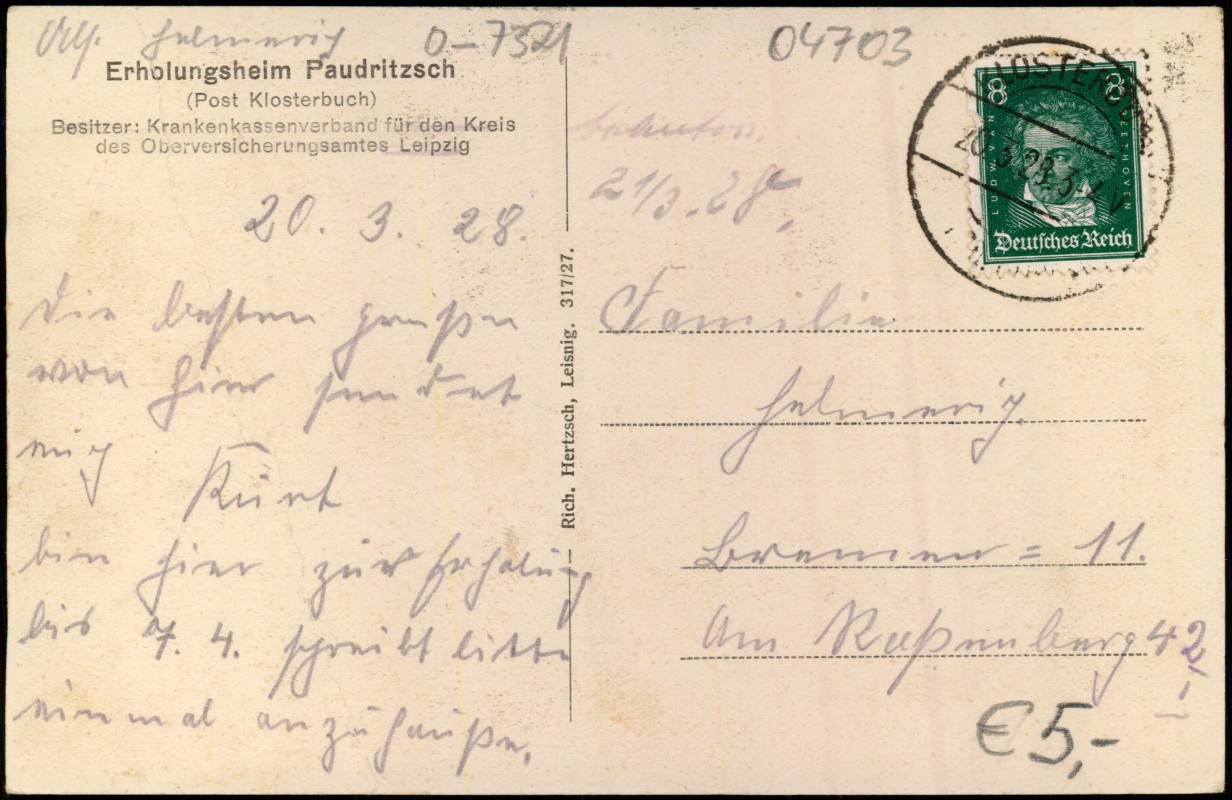 Abs. Helmerich O-7321 04703
Erholungsheim Paudritzsch
(Post Klosterbuch)
Besitzer: Krankenkassenverband für den Kreis
des Oberversicherungsamtes Leipzig
20. 3. 28.
Die besten grüße
von hier sendet
euch
Kurt
bin hier zur Erholung
bis 7. 4. schreibt bitte
einmal an zuhauße.
Rich. Hertzsch, Leisnig. 317/27.
21/3. 28.
KLOSTERBUCH
20.3.28.3-4 N
8 8
LUDWIG VAN BEETHOVEN
Deutsches Reich
Familie
Helmerich.
Bremen = 11.
Am 42
€5,-